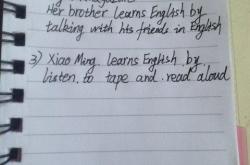 Her brother learns English by
talking with his friends in English
3) Xiao Ming learns English by
listen to tape and read aloud